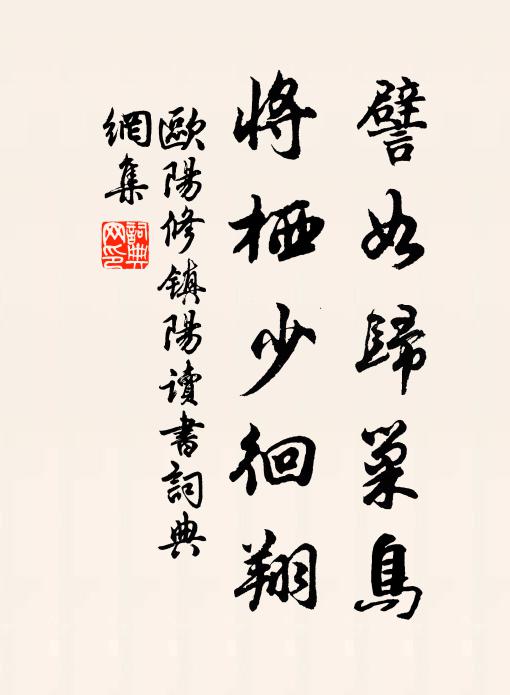 譬如歸巢鳥
將栖少徊翔
歐陽修鎮陽讀書詞典
網集
詞典网印